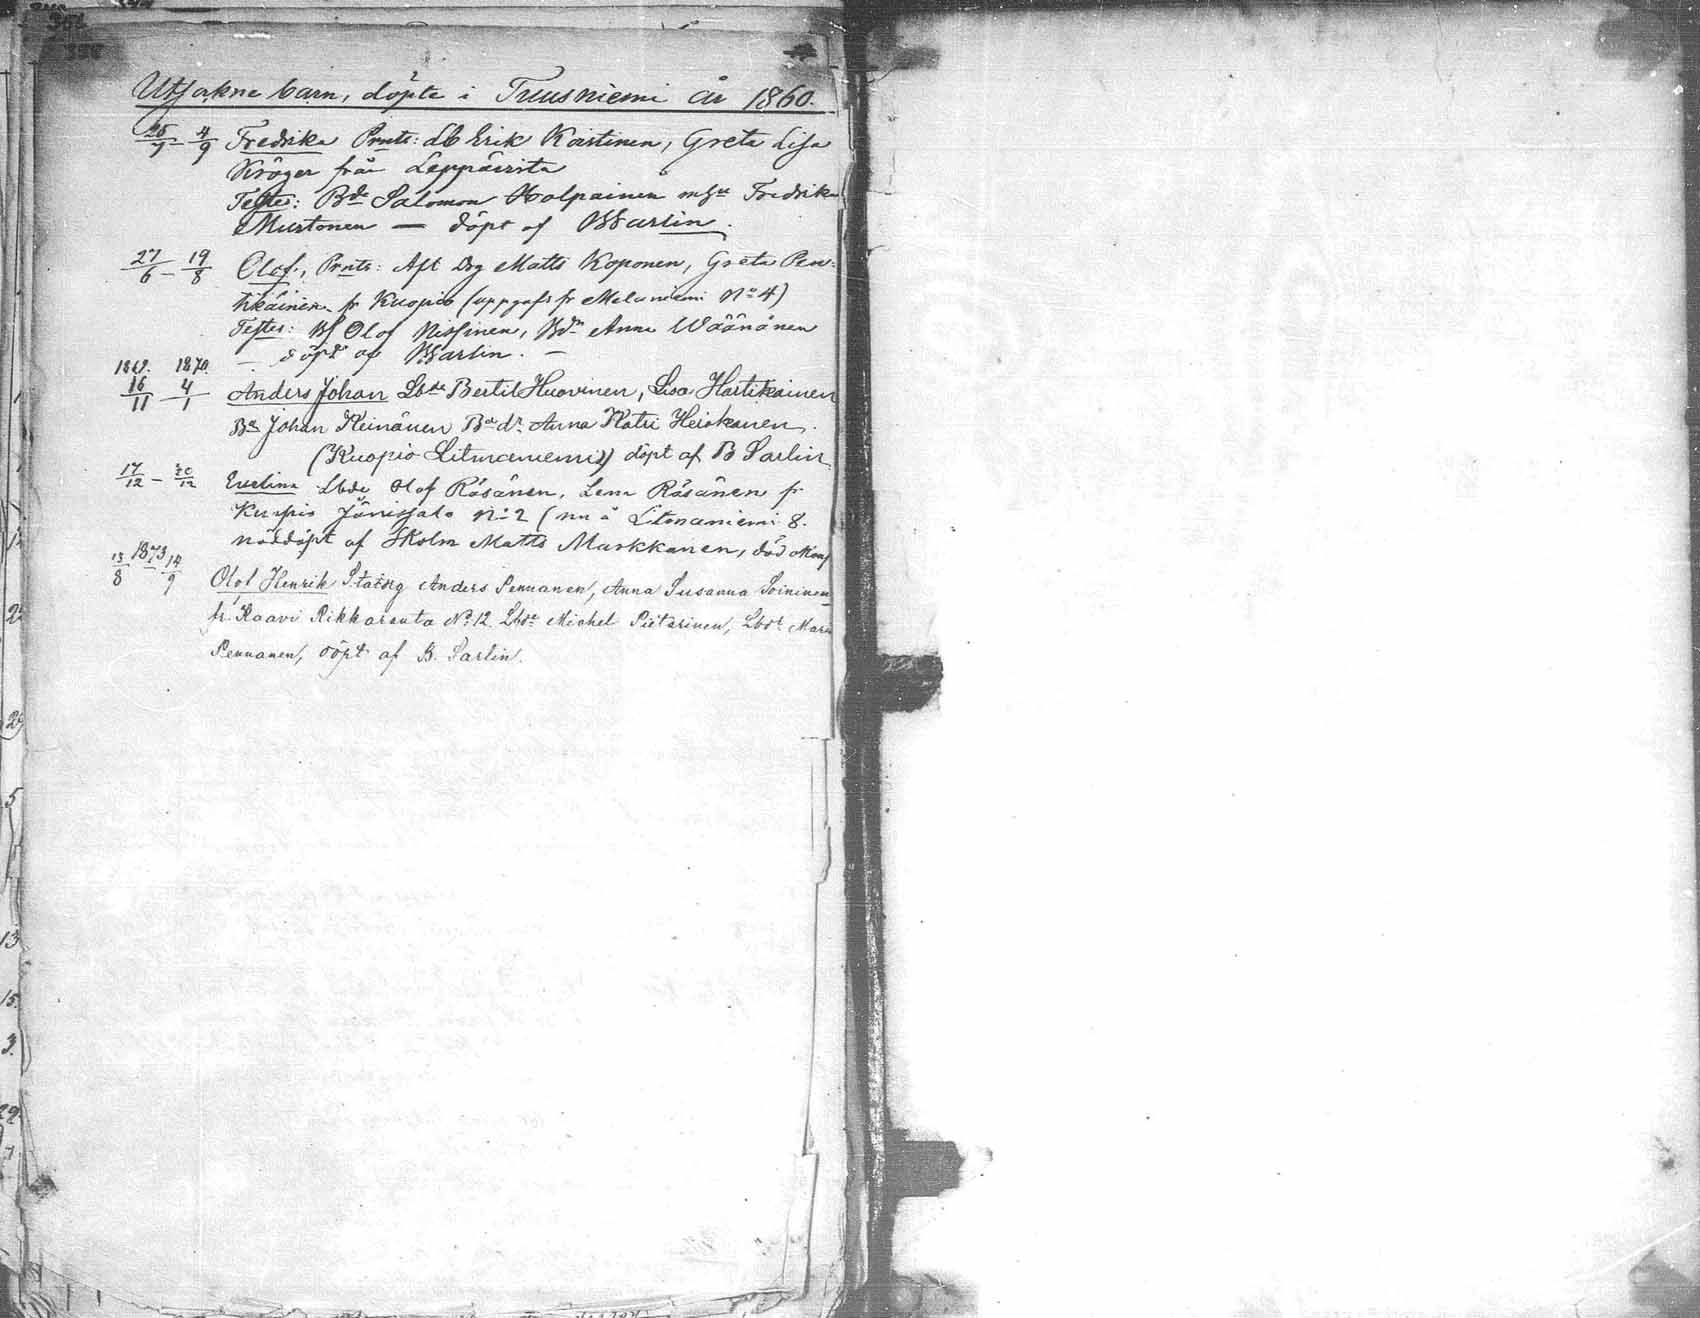 Utsokne barn, döpte i Tuusniemi år 1860.
4/9 Fredrika Prnts: Lb Erik Kaistinen, Greta Lisa
Kröger från Leppävirta
Testes: Bde Salomon Holpainen m hu Fredrika
Murtonen — döpt af BSarlin.
27/6 – 19/8 Olof, Prnts: Aft Drg Matts Koponen, Greta Pen-
tikäinen fr Kuopio (uppgafs fr Melaniemi No 4)
Testes: Olof Nissinen, Anna Wäänänen
– döpt af BSarlin. –
1869. 1870.
16/11 – 4/1 Anders Johan Lbde Bertil Huovinen, Lisa Hartikainen
Be Johan Keinänen Be dr Anna Katri Heiskanen.
(Kuopio Litmaniemi) döpt af B Sarlin
17/12 – 20/12 Evelina Lbde Olof Räsänen, Lena Räsänen fr
Kuopio Jänissalo No 2 (nu å Litmaniemi 8.
nöddöpt af Matts Markkanen, död
1873
13/8 – 14/9 Olof Henrik Statdrg Anders Pennanen, Anna Susanna Soininen
fr. Kaavi Rikkaranta No 12. Lbde Michel Pietarinen, Lbdr Maria
Pennanen, döpt af B. Sarlin.